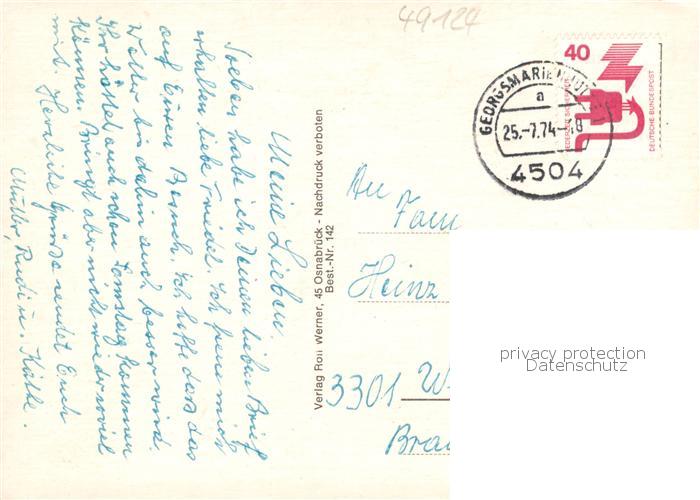 49124
Meine Lieben.
Soeben habe ich Deinen lieben Brief
erhalten liebe Friedel. Ich freue mich
auf Euren Besuch. Ich hoffe dass das
Wetter bis dahin auch besser wird.
Ihr hättet auch schon Samstag kommen
können. Bringt aber nicht wieder soviel
mit. Herzliche Grüsse sendet Euch
Mutter, Rudi u. Käthe.
Verlag Rolf Werner, 45 Osnabrück - Nachdruck verboten
Best.-Nr. 142
40
JEDERZEIT SICHERHEIT
DEUTSCHE BUNDESPOST
GEORGSMARIENHÜTTE
a
25.-7.74-18
4504
An
Fam
Heinz
3301 W
Bra
privacy protection
Datenschutz